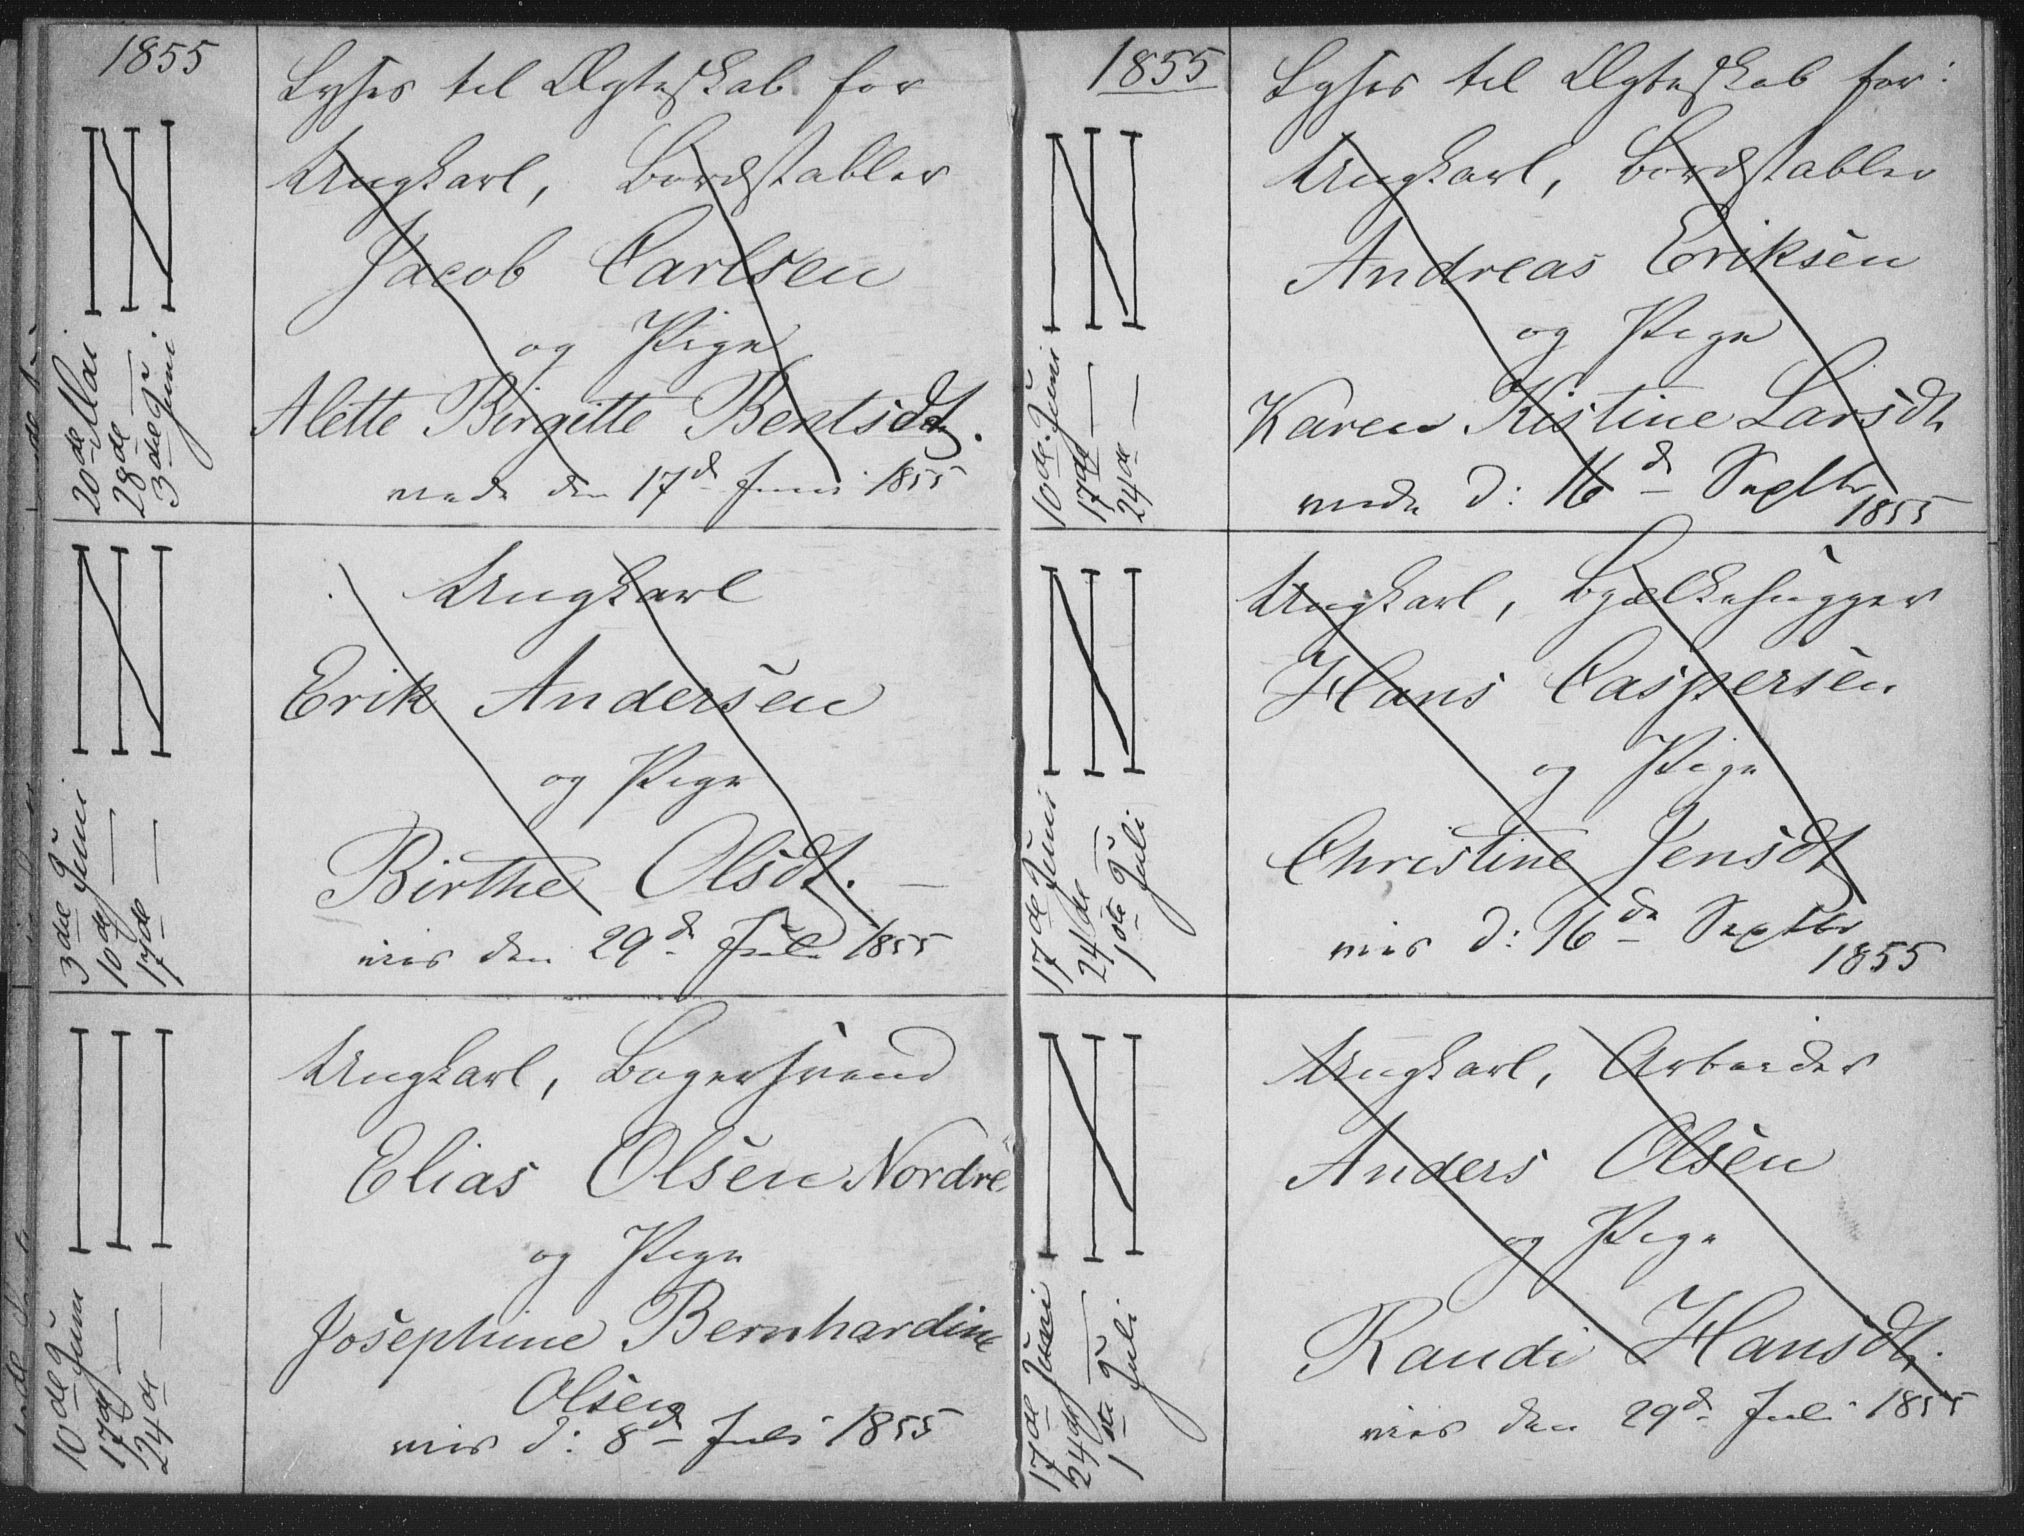 1855
Lyses til Ægteskab for
20de Mai
28de —
3die Juni
Ungkarl, Bordstabler
Jacob Carlsen
og Pige
Alette Birgitte Bentsdt.
17d Juni 1855
3die Juni
10de —
17de —
Ungkarl
Erik Andersen
og Pige
Birthe Olsdt. —
viet den 29d Juli 1855
10de Juni
17de —
24de —
Ungkarl, Bagersvend
Elias Olsen Nordre
og Pige
Josephine Bernhardine
Olsen
viet d: 8d Juli 1855
1855
Lyses til Ægteskab for:
10de Juni
17de —
24de —
Ungkarl, Bordstabler
Andreas Eriksen
og Pige
Karen Kistine Larsdt.
d: 16d Septbr
1855
17de Juni
24de —
1ste Juli
Ungkarl, Bjælkehugger
Hans Caspersen
og Pige
Christine Jensdt
viet d: 16de Septbr
1855
17de Juni
24de —
1ste Juli
Ungkarl, Arbeider
Anders Olsen
og Pige
Randi Hansdt.
viet den 29d Juli 1855